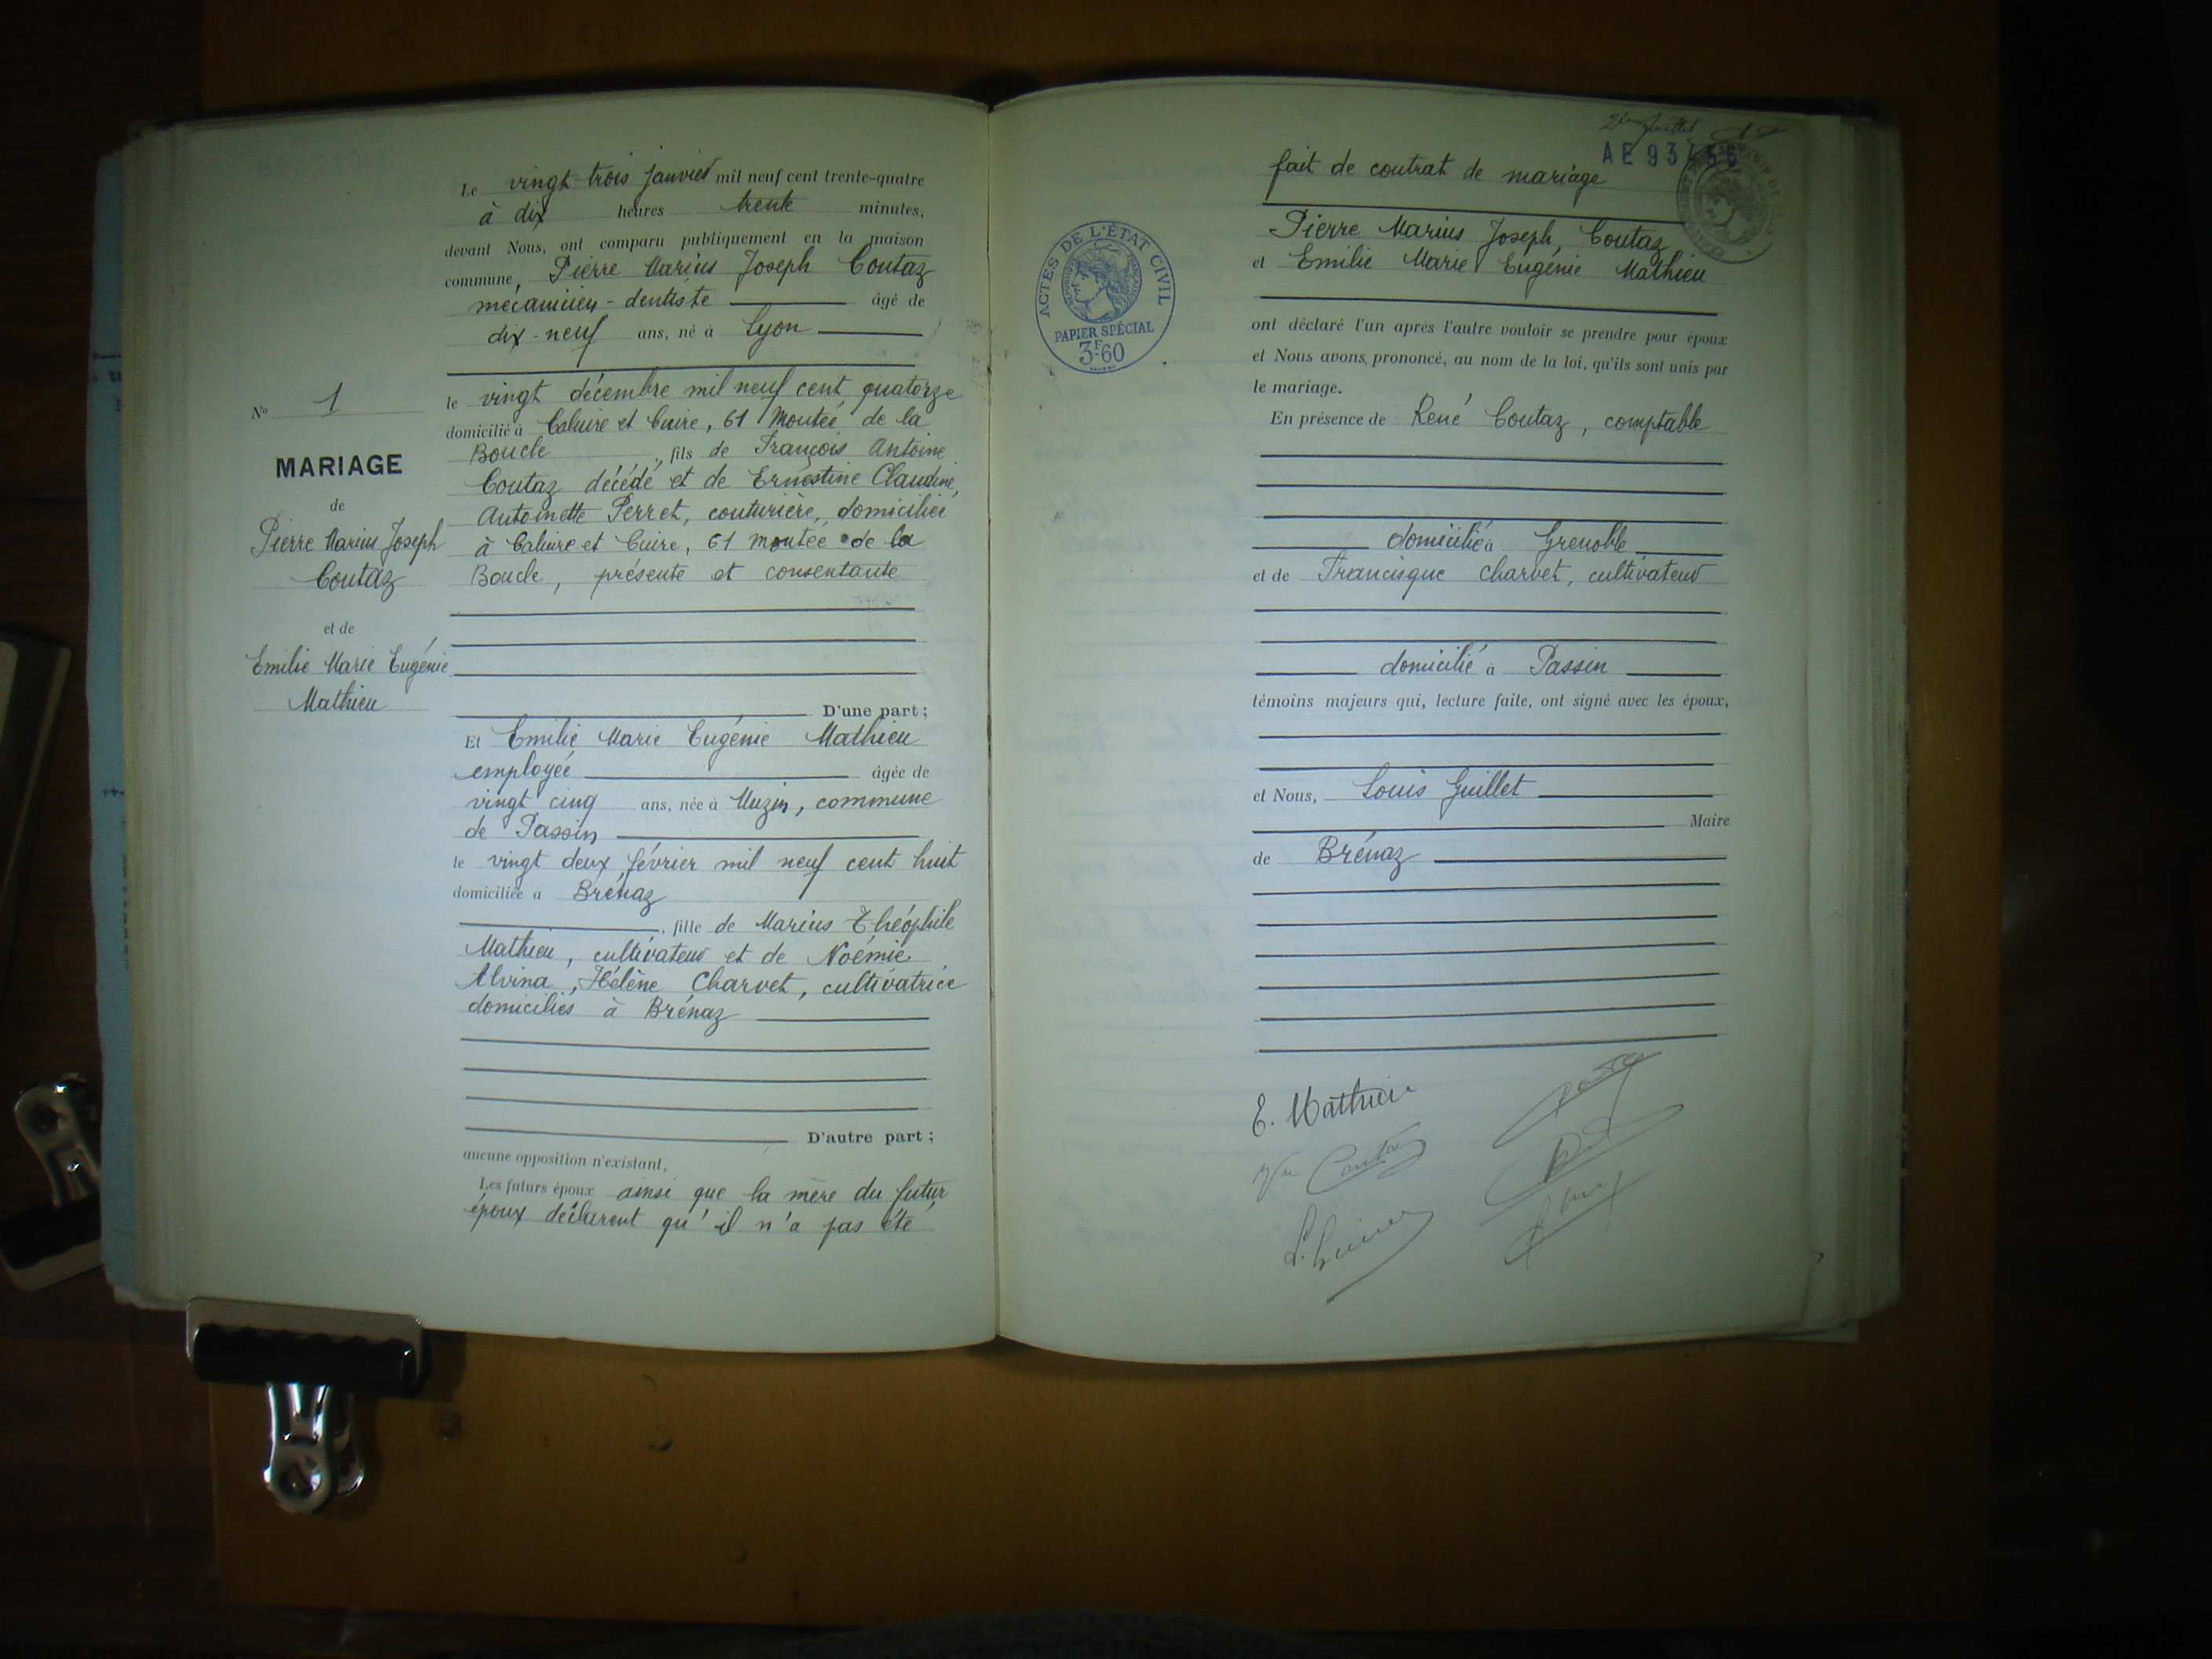 N° 1
MARIAGE
de
Pierre Marius Joseph
Coutaz
et de
Emilie Marie Eugénie
Mathieu
Le vingt-trois janvier mil neuf cent trente-quatre
à dix heures trente minutes,
devant Nous, ont comparu publiquement en la maison
commune, Pierre Marius Joseph Coutaz
mécanicien-dentiste âgé de
dix-neuf ans, né à Lyon
le vingt décembre mil neuf cent quatorze
domicilié à Caluire et Cuire, 61 Montée de la
Boucle, fils de François Antoine
Coutaz décédé et de Ernestine Claudine,
Antoinette Perret, couturière, domiciliée
à Caluire et Cuire, 61 montée de la
Boucle, présente et consentante
D'une part ;
Et Emilie Marie Eugénie Mathieu
employée âgée de
vingt cinq ans, née à Muzin, commune
de Passin
le vingt deux février mil neuf cent huit
domiciliée à Brénaz
, fille de Marius Théophile
Mathieu, cultivateur et de Noémie
Alvina, Hélène Charvet, cultivatrice
domiciliés à Brénaz
D'autre part ;
aucune opposition n'existant,
Les futurs époux ainsi que la mère du futur
époux déclarent qu'il n'a pas été
AE 93456
fait de contrat de mariage
ACTES DE L'ÉTAT CIVIL
PAPIER SPÉCIAL
3F.60
Pierre Marius Joseph, Coutaz
et Emilie Marie Eugénie Mathieu
ont déclaré l'un après l'autre vouloir se prendre pour époux
et Nous avons, prononcé, au nom de la loi, qu'ils sont unis par
le mariage.
En présence de René Coutaz, comptable
domicilié à Grenoble
et de Francisque Charvet, cultivateur
domicilié à Passin
témoins majeurs qui, lecture faite, ont signé avec les époux,
et Nous, Louis Guillet
Maire
de Brénaz
E. Mathieu
Vve Coutaz